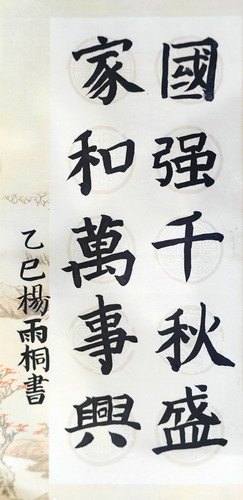 國强千秋盛
家和萬事興
乙巳楊雨桐書